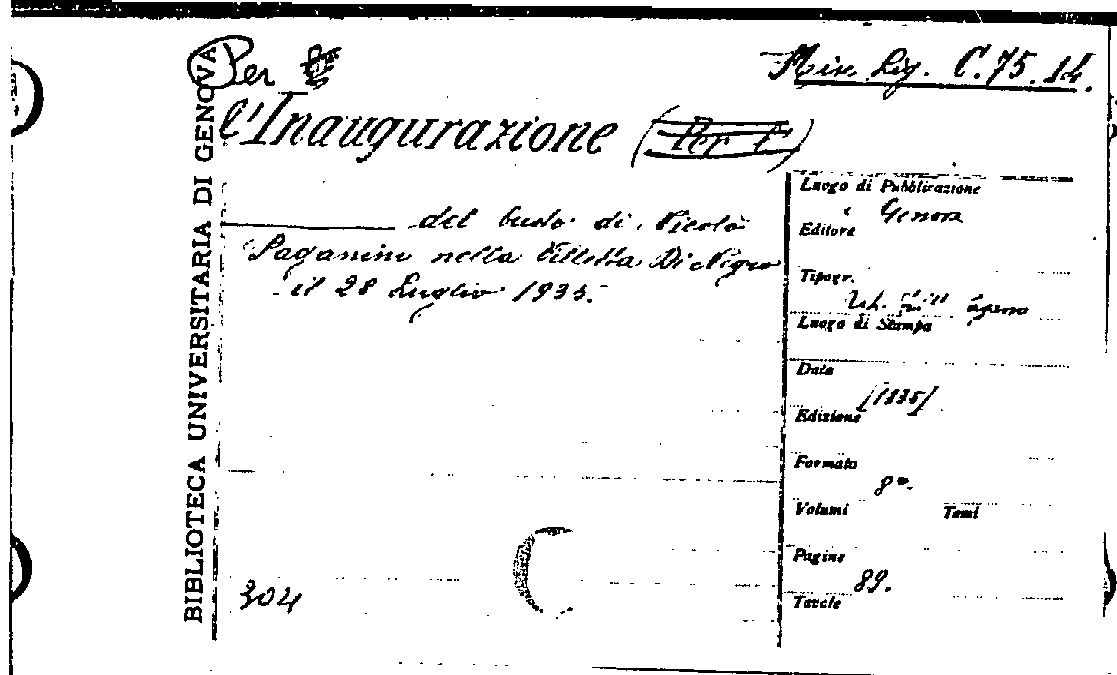 BIBLIOTECA UNIVERSITARIA DI GENOVA
Per
Misc. Lig. C.75.14.
l'Inaugurazione (Per l')
del busto di Nicolò
Paganini nella Villetta Di Negro
il 28 Luglio 1835.
Luogo di Pubblicazione
Genova
Editore
Tipogr.
Luogo di Stampa
Data
[1835]
Edizione
Formato
8°.
Volumi Tomi
Pagine
89.
Tavole
304